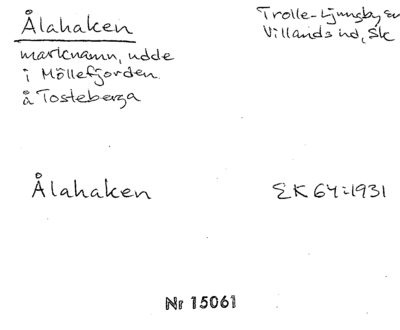 Ålahaken
Trolle-Ljungby sn
Villands hd, Sk
marknamn, udde
i Möllefjorden
å Tosteberga
Ålahaken
EK 64:1931
Nr 15061